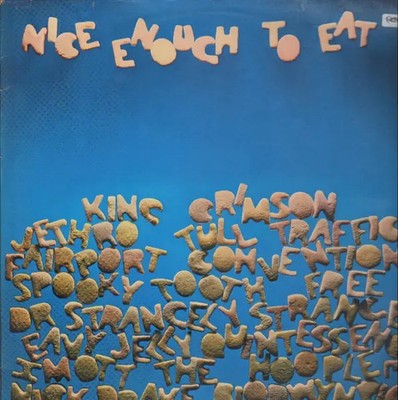 NICE ENOUGH TO EAT
KING CRIMSON
JETHRO TULL TRAFFIC
FAIRPORT CONVENTION
SPOOKY TOOTH FREE
DR STRANGELY STRANGE
EAVY JELLY QUINTESSEN
MOTT THE HOOPLE
NICK DRAKE BLODWYN